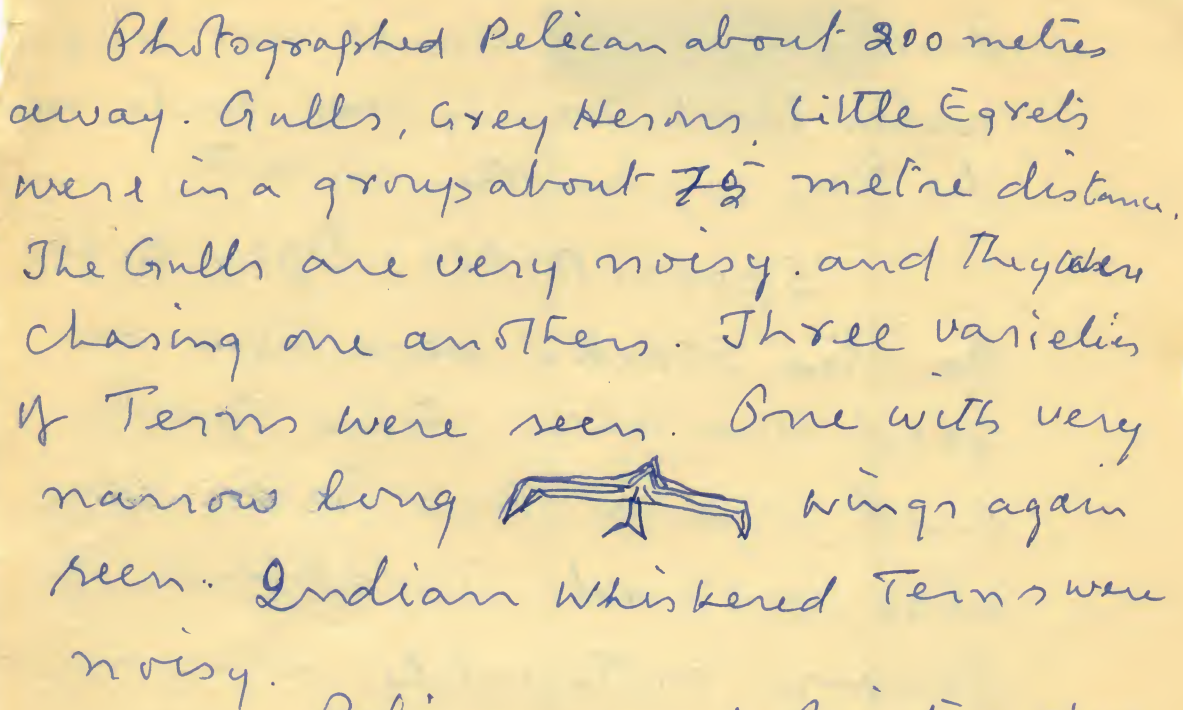 Photographed Pelican about 200 metres
away. Gulls, Grey Herons, Little Egrets
were in a group about 75 metre distance.
The Gulls are very noisy. and They were
chasing one anothers. Three varieties
of Terns were seen. One with very
narrow long wings again
seen. Indian Whiskered Terns were
noisy.